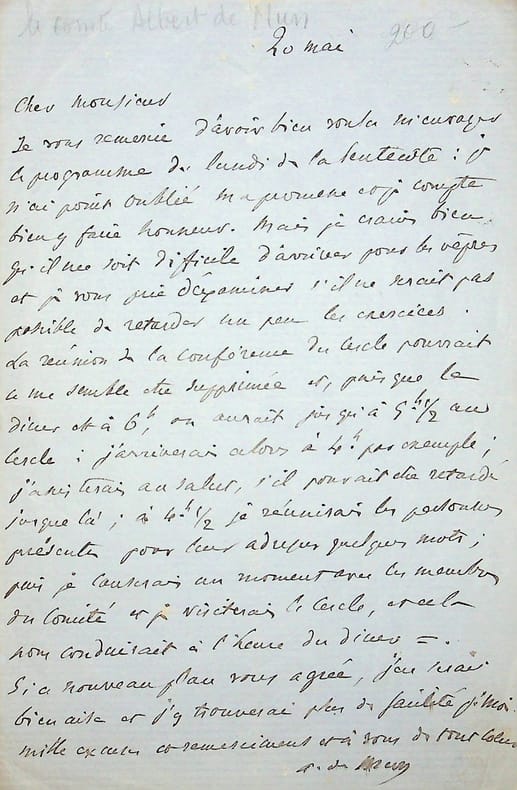 le comte Albert de Mun
20 mai
200 -
Cher Monsieur
Je vous remercie d'avoir bien voulu m'envoyer
le programme du lundi de la Pentecôte : je
n'ai point oublié ma promesse et je compte
bien y faire honneur. Mais je crains bien
qu'il ne soit difficile d'arriver pour les vêpres
et je vous prie d'examiner s'il ne serait pas
possible de retarder un peu les exercices.
La réunion de la conférence du Cercle pourrait
ce me semble être supprimée et, puisque le
diner est à 6h, on aurait jusqu'à 5h 1/2 au
Cercle : j'arriverais alors à 4h par exemple ;
j'assisterais au salut, s'il pouvait être retardé
jusque là ; à 4h 1/2 je réunirais les personnes
présentes pour leur adresser quelques mots ;
puis je causerais un moment avec les membres
du Comité et je visiterais le Cercle, et cela
nous conduirait à l'heure du diner =.
Si ce nouveau plan vous agrée, j'en serai
bien aise et j'y trouverai plus de facilité
mille excuses et remerciements et à vous de tout coeur
A. de Mun